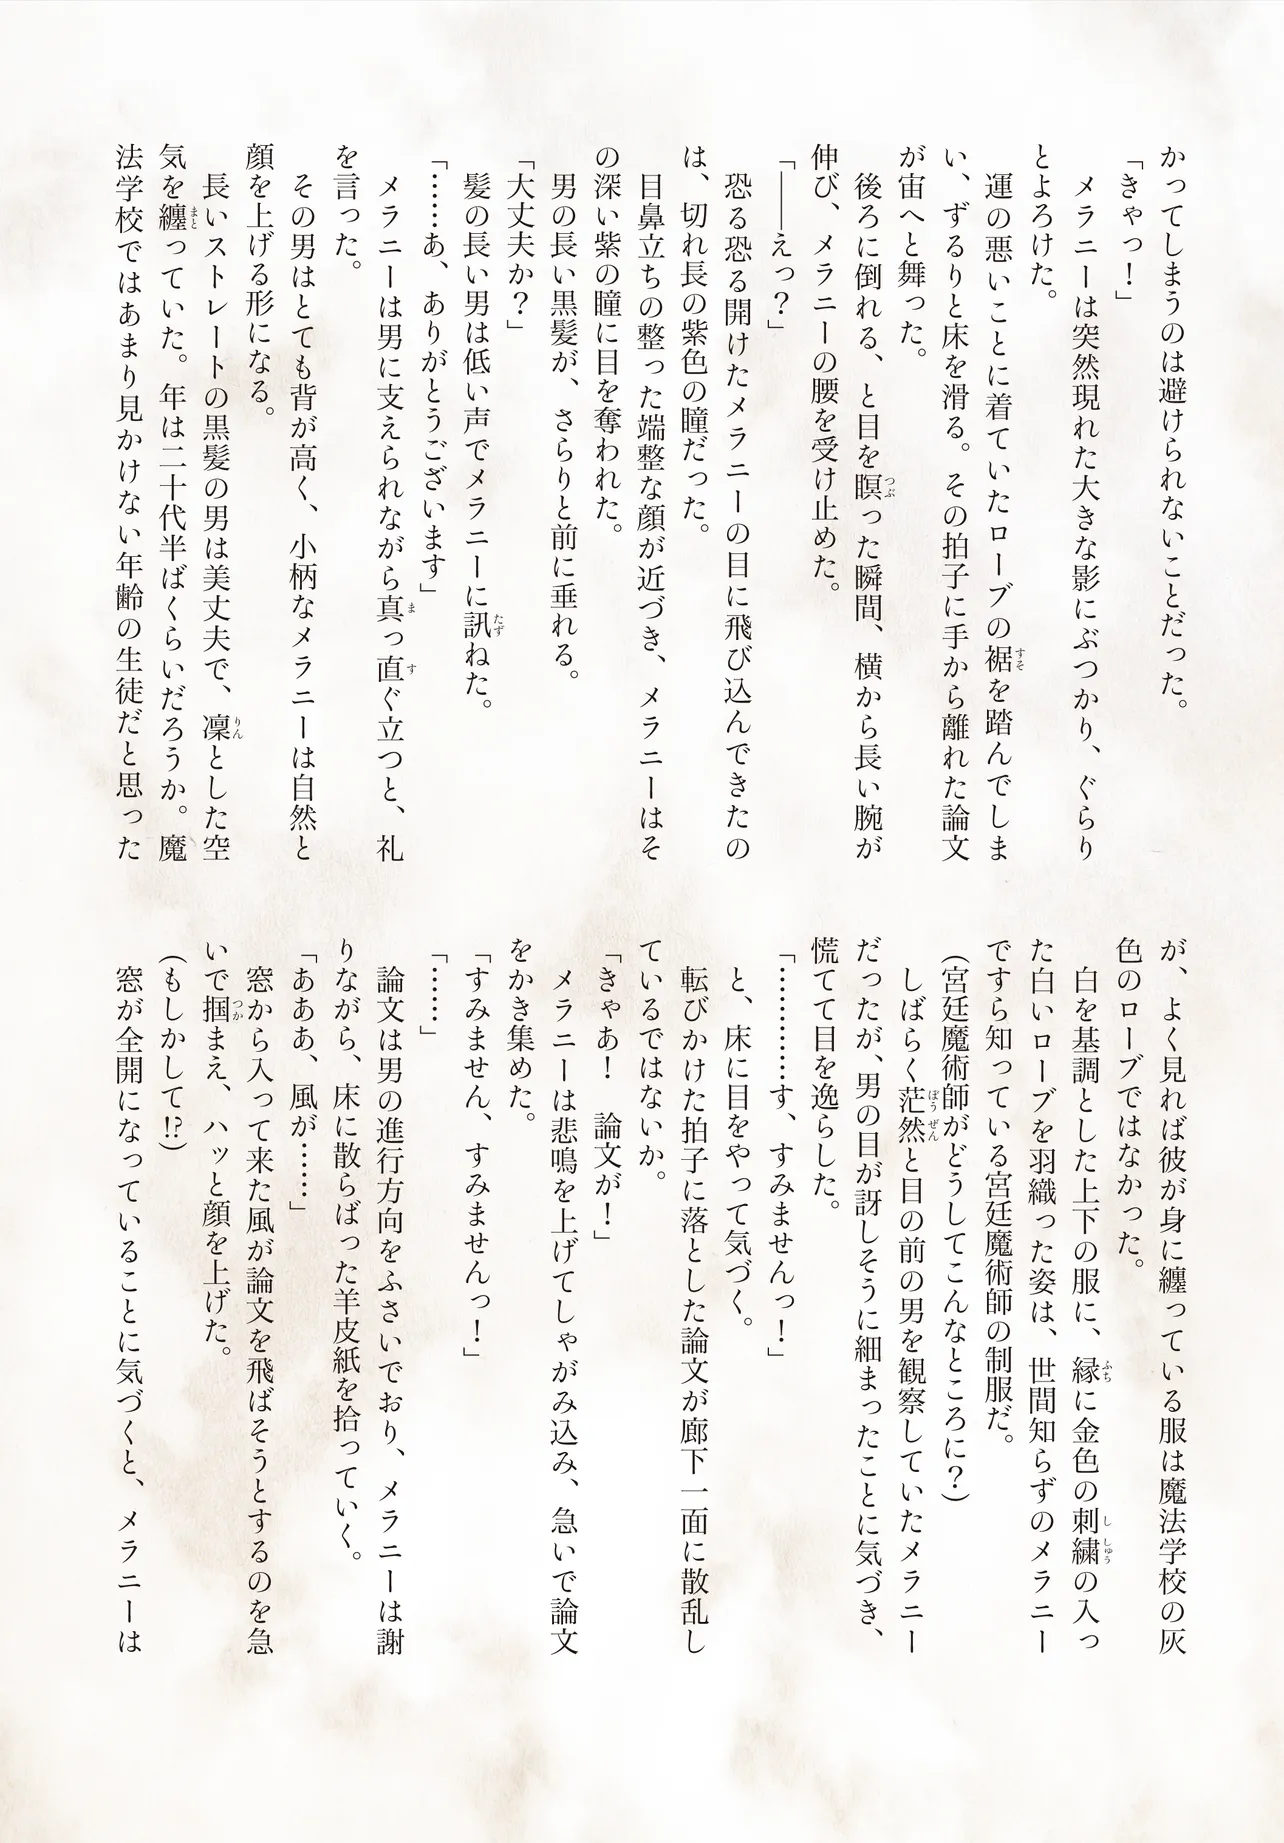 かってしまうのは避けられないことだった。
「きゃっ！」
　メラニーは突然現れた大きな影にぶつかり、ぐらり
とよろけた。
　運の悪いことに着ていたローブの裾を踏んでしま
い、ずるりと床を滑る。その拍子に手から離れた論文
が宙へと舞った。
　後ろに倒れる、と目を瞑った瞬間、横から長い腕が
伸び、メラニーの腰を受け止めた。
「――えっ？」
　恐る恐る開けたメラニーの目に飛び込んできたの
は、切れ長の紫色の瞳だった。
　目鼻立ちの整った端整な顔が近づき、メラニーはそ
の深い紫の瞳に目を奪われた。
　男の長い黒髪が、さらりと前に垂れる。
「大丈夫か？」
　髪の長い男は低い声でメラニーに訊ねた。
「……あ、ありがとうございます」
　メラニーは男に支えられながら真っ直ぐ立つと、礼
を言った。
　その男はとても背が高く、小柄なメラニーは自然と
顔を上げる形になる。
　長いストレートの黒髪の男は美丈夫で、凛とした空
気を纏っていた。年は二十代半ばくらいだろうか。魔
法学校ではあまり見かけない年齢の生徒だと思った
が、よく見れば彼が身に纏っている服は魔法学校の灰
色のローブではなかった。
　白を基調とした上下の服に、縁に金色の刺繍の入っ
た白いローブを羽織った姿は、世間知らずのメラニー
ですら知っている宮廷魔術師の制服だ。
（宮廷魔術師がどうしてこんなところに？）
　しばらく茫然と目の前の男を観察していたメラニー
だったが、男の目が訝しそうに細まったことに気づき、
慌てて目を逸らした。
「…………す、すみませんっ！」
　と、床に目をやって気づく。
　転びかけた拍子に落とした論文が廊下一面に散乱し
ているではないか。
「きゃあ！　論文が！」
　メラニーは悲鳴を上げてしゃがみ込み、急いで論文
をかき集めた。
「すみません、すみませんっ！」
「……」
　論文は男の進行方向をふさいでおり、メラニーは謝
りながら、床に散らばった羊皮紙を拾っていく。
「あああ、風が……」
　窓から入って来た風が論文を飛ばそうとするのを急
いで掴まえ、ハッと顔を上げた。
（もしかして!?）
　窓が全開になっていることに気づくと、メラニーは